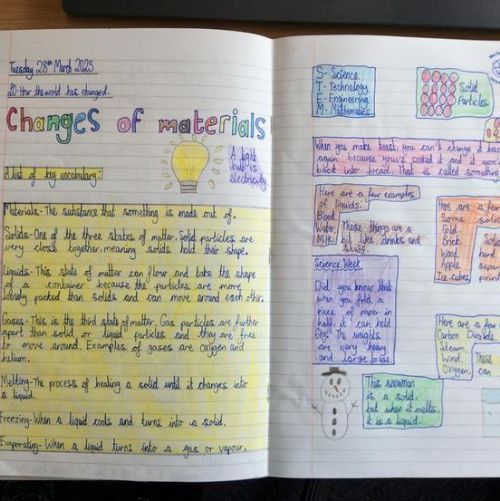 Tuesday 28th March 2023
LO: How the world has changed.
Changes of materials
A light
bulb is
electricity.
A list of key vocabulary:
Materials- The substance that something is made out of.
Solids- One of the three states of matter. Solid particles are
very close together, meaning solids hold their shape.
Liquids- This state of matter can flow and take the shape
of a container because the particles are more
loosely packed than solids and can move around each other.
Gases- This is the third state of matter. Gas particles are further
apart than solid or liquid particles and they are free
to move around. Examples of gases are oxygen and
helium.
Melting- The process of heating a solid until it changes into
a liquid.
Freezing- When a liquid cools and turns into a solid.
Evaporating- When a liquid turns into a gas or vapour.
S- Science
T- Technology
E- Engineering
M- Mathematics
Solid
Particles
When you make toast, you can't change it back
again because you've cooked it and it won't
back into bread. That is called something
Here are a few examples
of liquids:
Blood
Water
Milk
These things are a
bit like drinks and
stuff.
Here are a few
Some
Gold
Brick
Wood
Apple
Ice cubes
Solids
hard
super
point
Science Week
Did you know that
when you fold a
piece of paper in
half, it can hold
6kg. The weights
are very heavy
and large
Here are a few
Carbon Dioxide
Steam
Wind
Oxygen
These
can
This snowman
is a solid,
but when it melts,
it is a liquid.